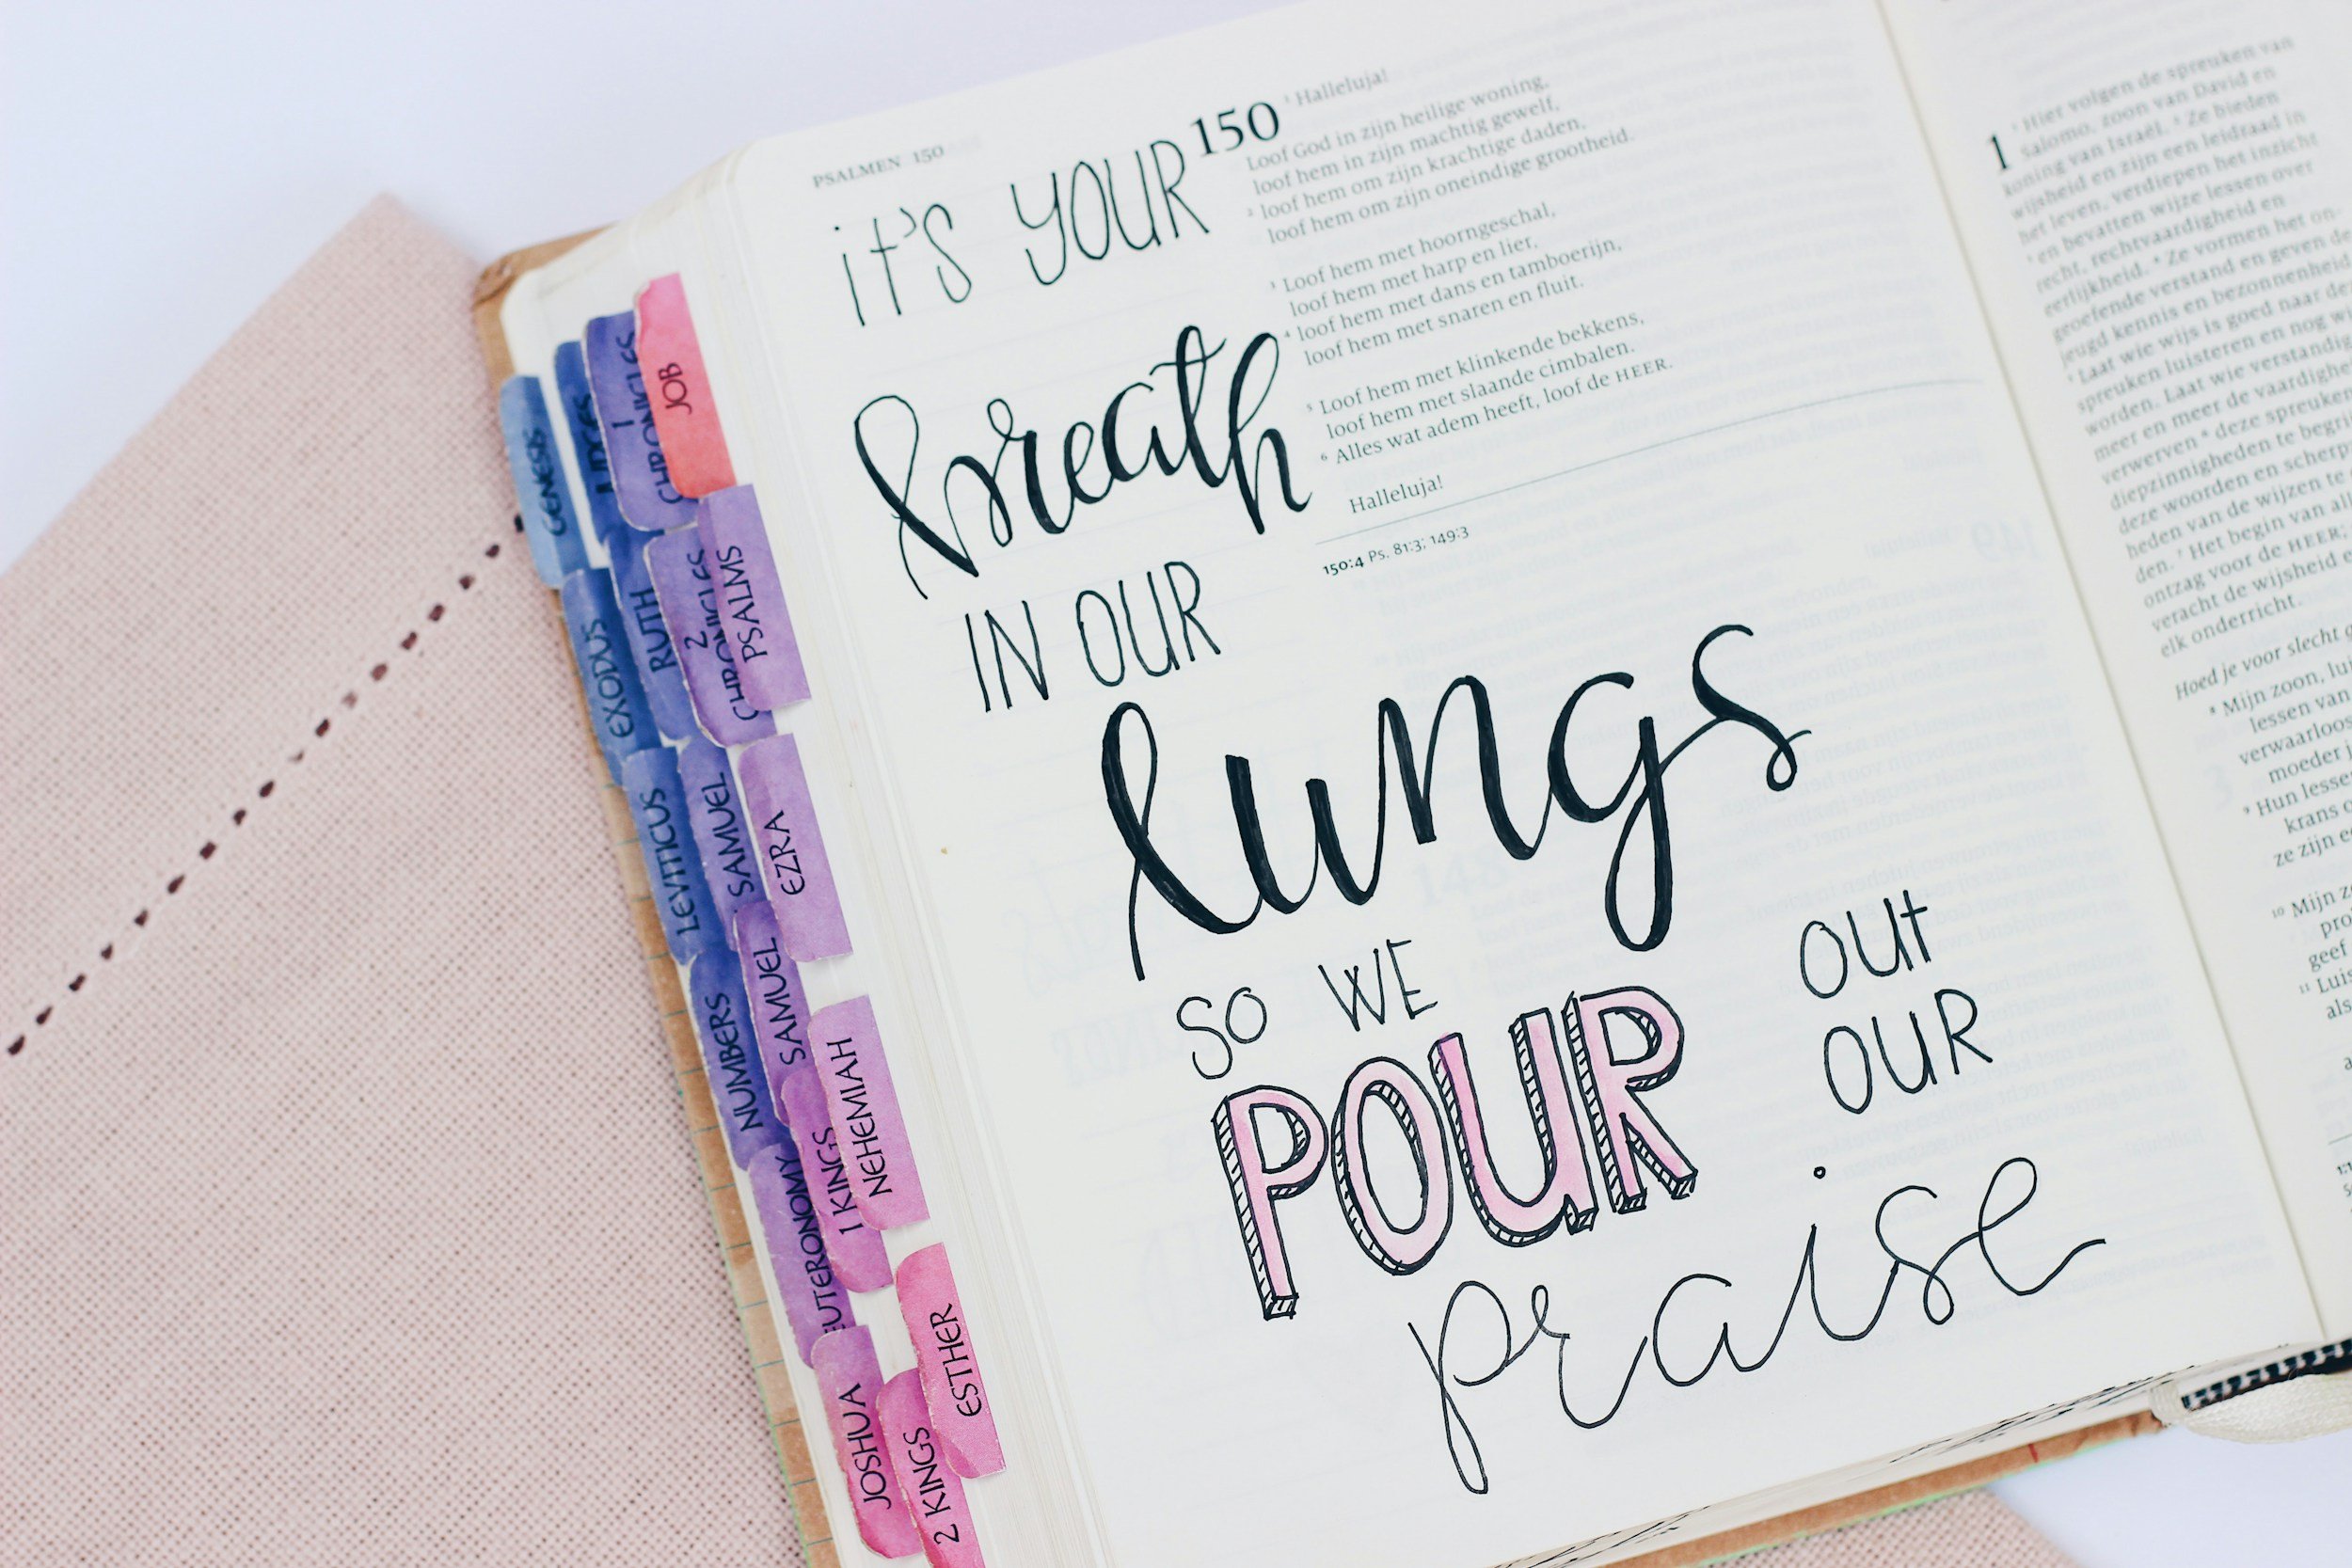 GENESIS
EXODUS
LEVITICUS
NUMBERS
JOSHUA
JUDGES
RUTH
SAMUEL
SAMUEL
1 KINGS
2 KINGS
1 CHRONICLES
2 CHRONICLES
EZRA
NEHEMIAH
ESTHER
JOB
PSALMS
PSALMEN 150
iT'S YOUR
breath
IN OUR
lungs
SO WE
POUR
OUt
OUR
praise
150
¹ Halleluja!
Loof God in zijn heilige woning,
loof hem in zijn machtig gewelf,
² loof hem om zijn krachtige daden,
loof hem om zijn oneindige grootheid.
³ Loof hem met hoorngeschal,
loof hem met harp en lier,
⁴ loof hem met dans en tamboerijn,
loof hem met snaren en fluit.
⁵ Loof hem met klinkende bekkens,
loof hem met slaande cimbalen.
⁶ Alles wat adem heeft, loof de HEER.
Halleluja!
150:4 Ps. 81:3; 149:3
1
¹ Hier volgen de spreuken van
Salomo, zoon van David en
koning van Israël. ² Ze bieden
wijsheid en zijn een leidraad in
het leven, verdiepen het inzicht
³ en bevatten wijze lessen over
recht, rechtvaardigheid en
eerlijkheid. ⁴ Ze vormen het on-
geoefende verstand en geven de
jeugd kennis en bezonnenheid
⁵ Laat wie wijs is goed naar deze
spreuken luisteren en nog w
worden. Laat wie verstandig
meer en meer de vaardighe
verwerven ⁶ deze spreuken
diepzinnigheden te begri
deze woorden en scherp
heden van de wijzen te
den. ⁷ Het begin van al
ontzag voor de HEER;
veracht de wijsheid e
elk onderricht.
Hoed je voor slecht g
⁸ Mijn zoon, lui
lessen van
verwaarloo
moeder j
⁹ Hun lesse
krans
ze zijn e
¹⁰ Mijn z
geef
¹¹ Luis
als